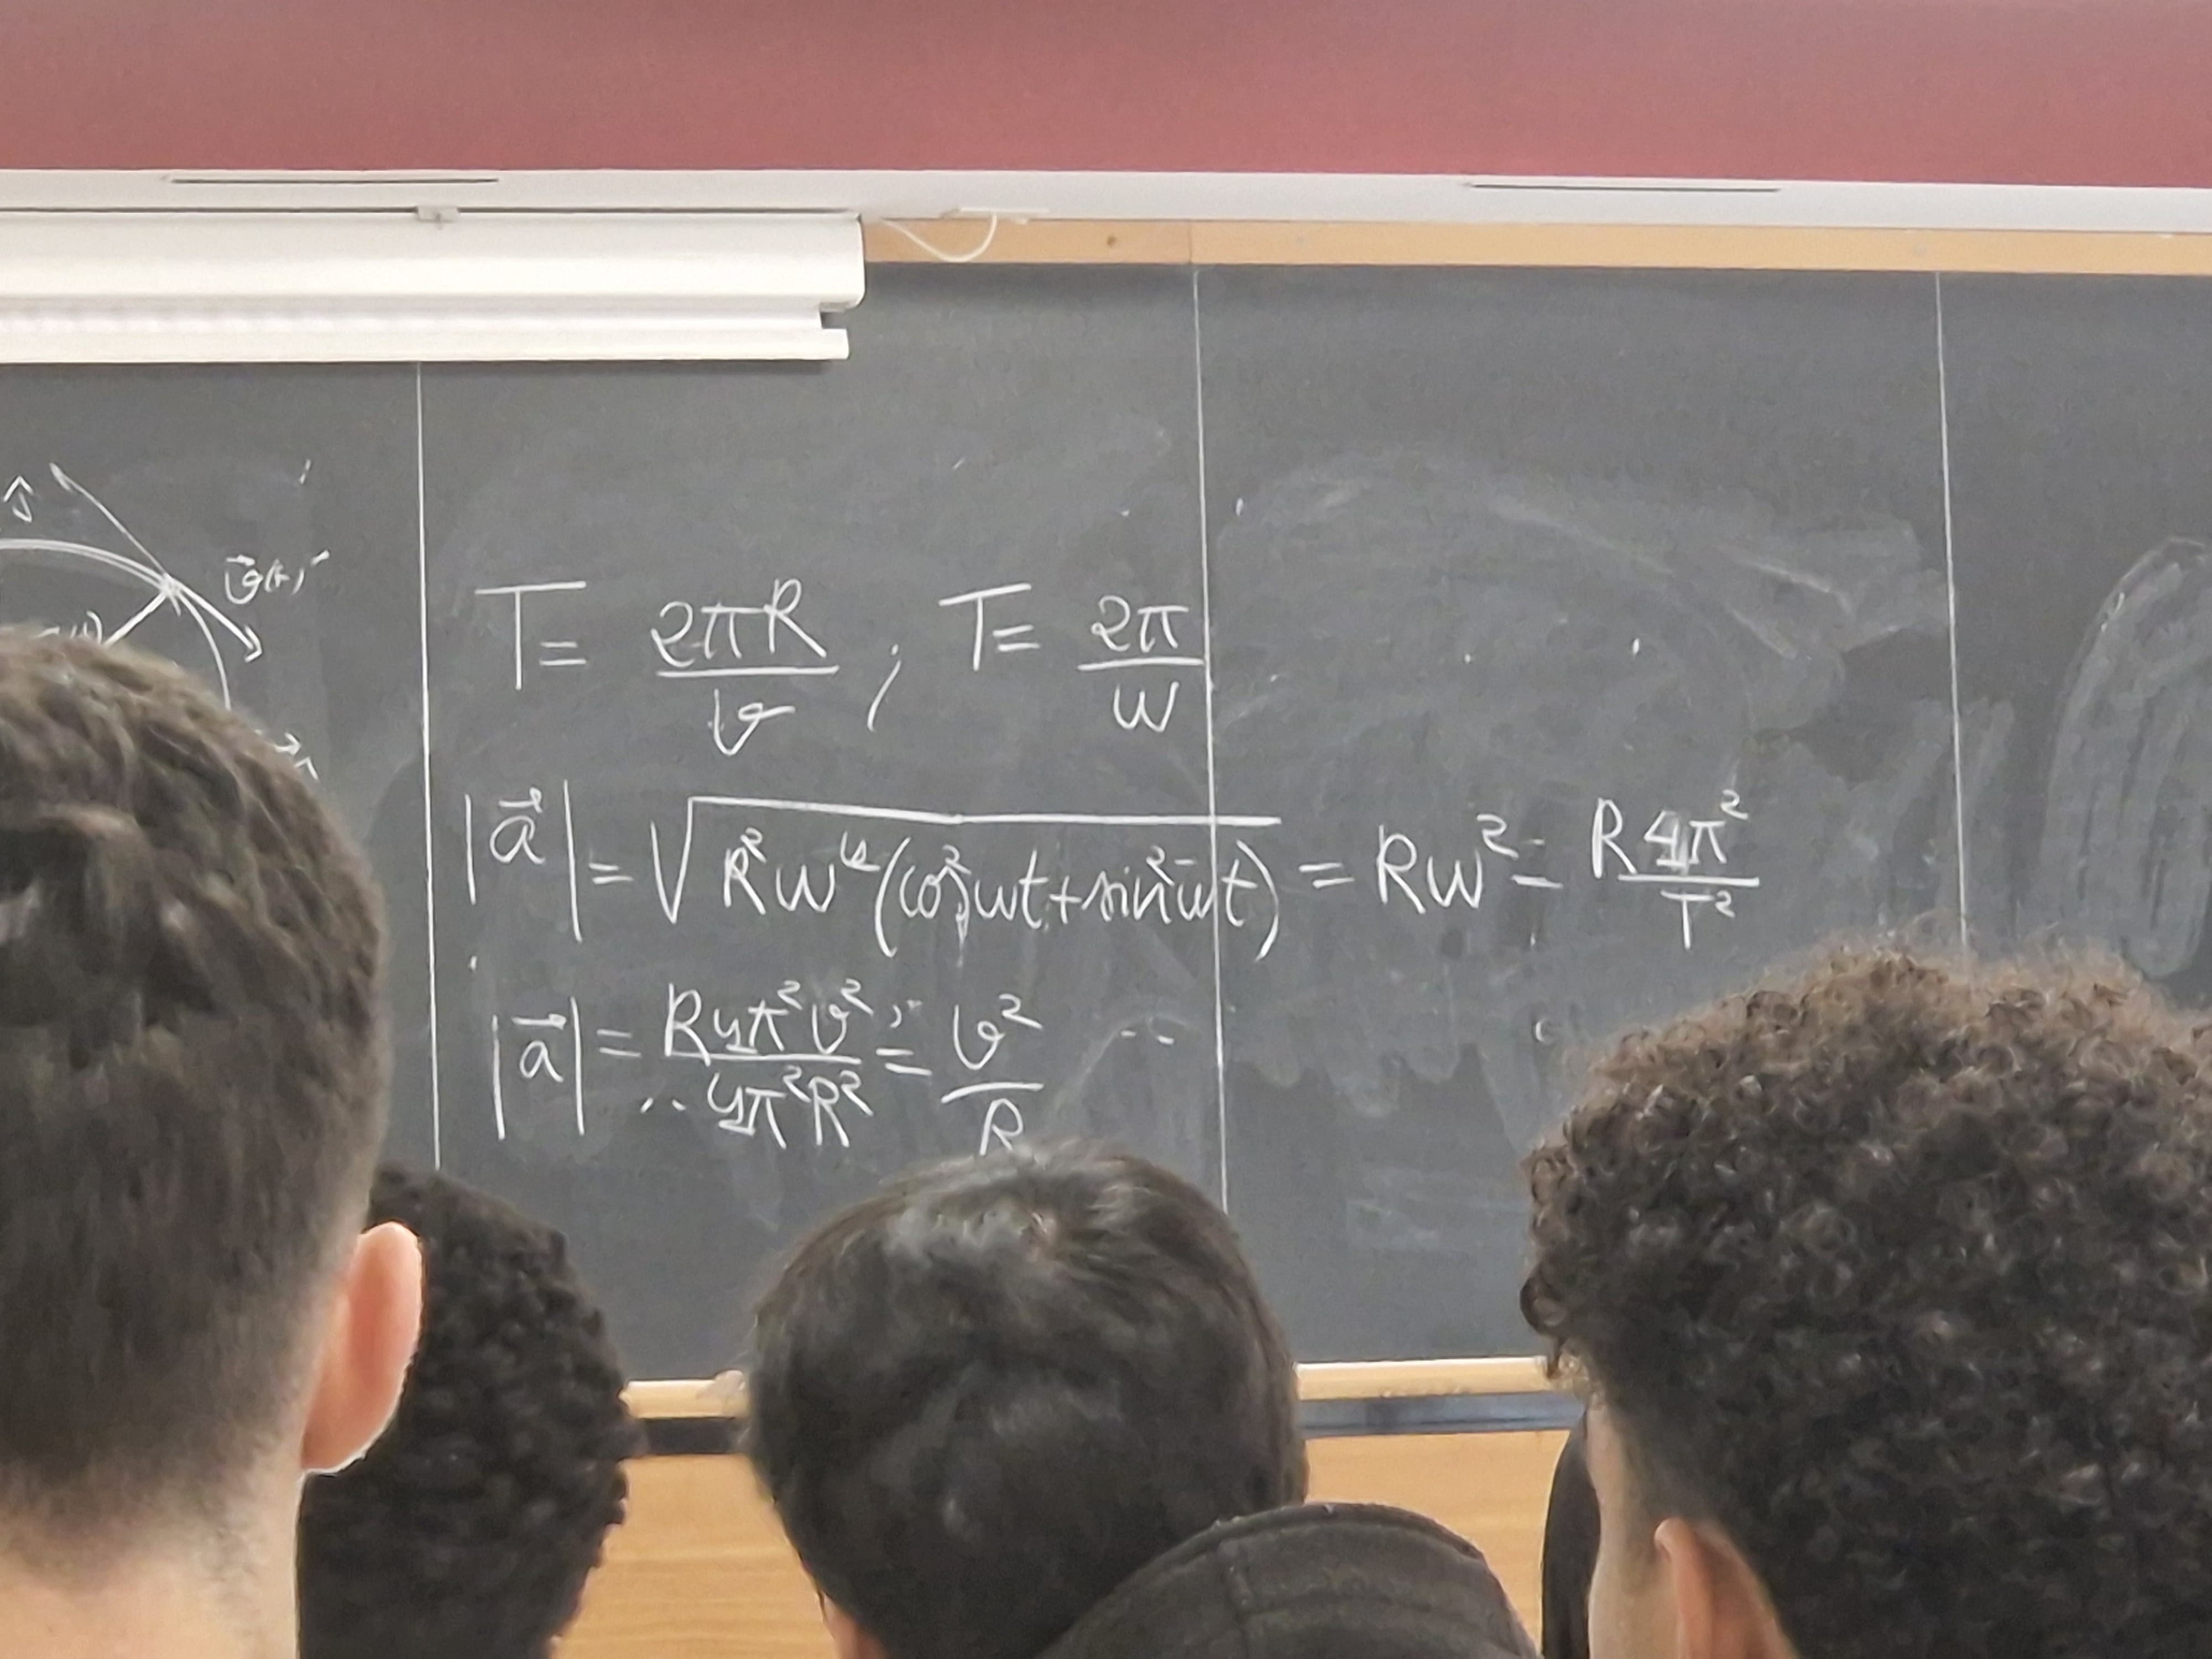 ĵ
v⃗(t)
T = 2πR/v ; T = 2π/w
|a⃗| = √(R²w⁴(cos²wt + sin²wt)) = Rw² = R4π²/T²
|a⃗| = R4π²v²/4π²R² = v²/R